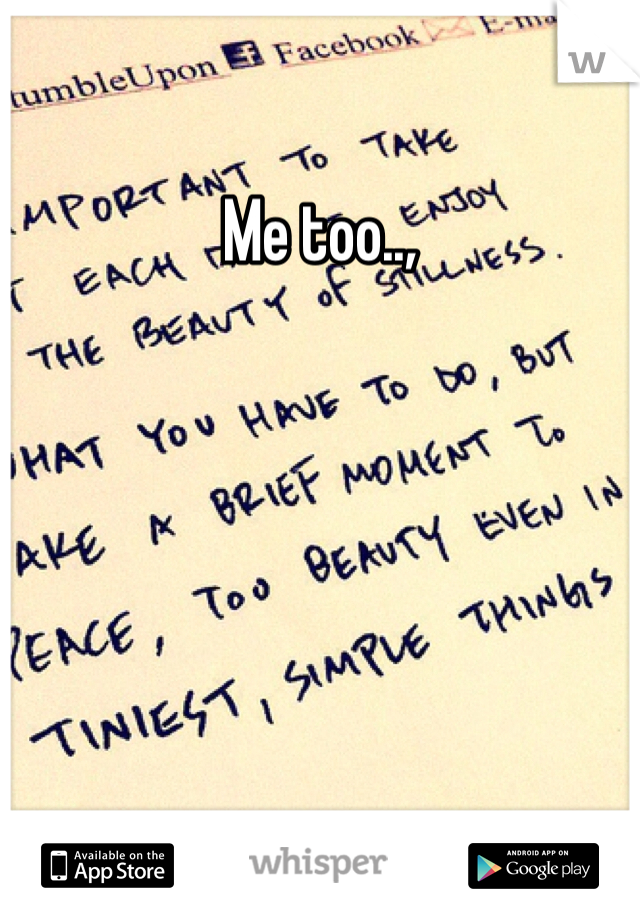 tumbleUpon Facebook E-ma
w
IMPORTANT TO TAKE
T EACH ENJOY
Me too..,
THE BEAUTY OF STILLNESS.
WHAT YOU HAVE TO DO, BUT
AKE A BRIEF MOMENT TO
PEACE, TOO BEAUTY EVEN IN
TINIEST, SIMPLE THINGS
Available on the App Store
whisper
ANDROID APP ON Google play